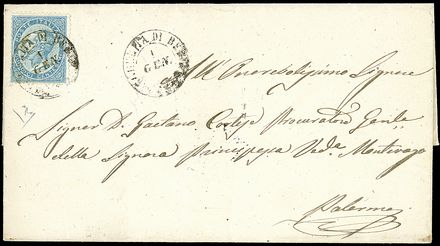 All' Onorabilissimo Signore
Signor D. Gaetano Cortese Procuratore Gen.le
della Signora Principessa Ved.a Montevago
Palermo
1
GEN.